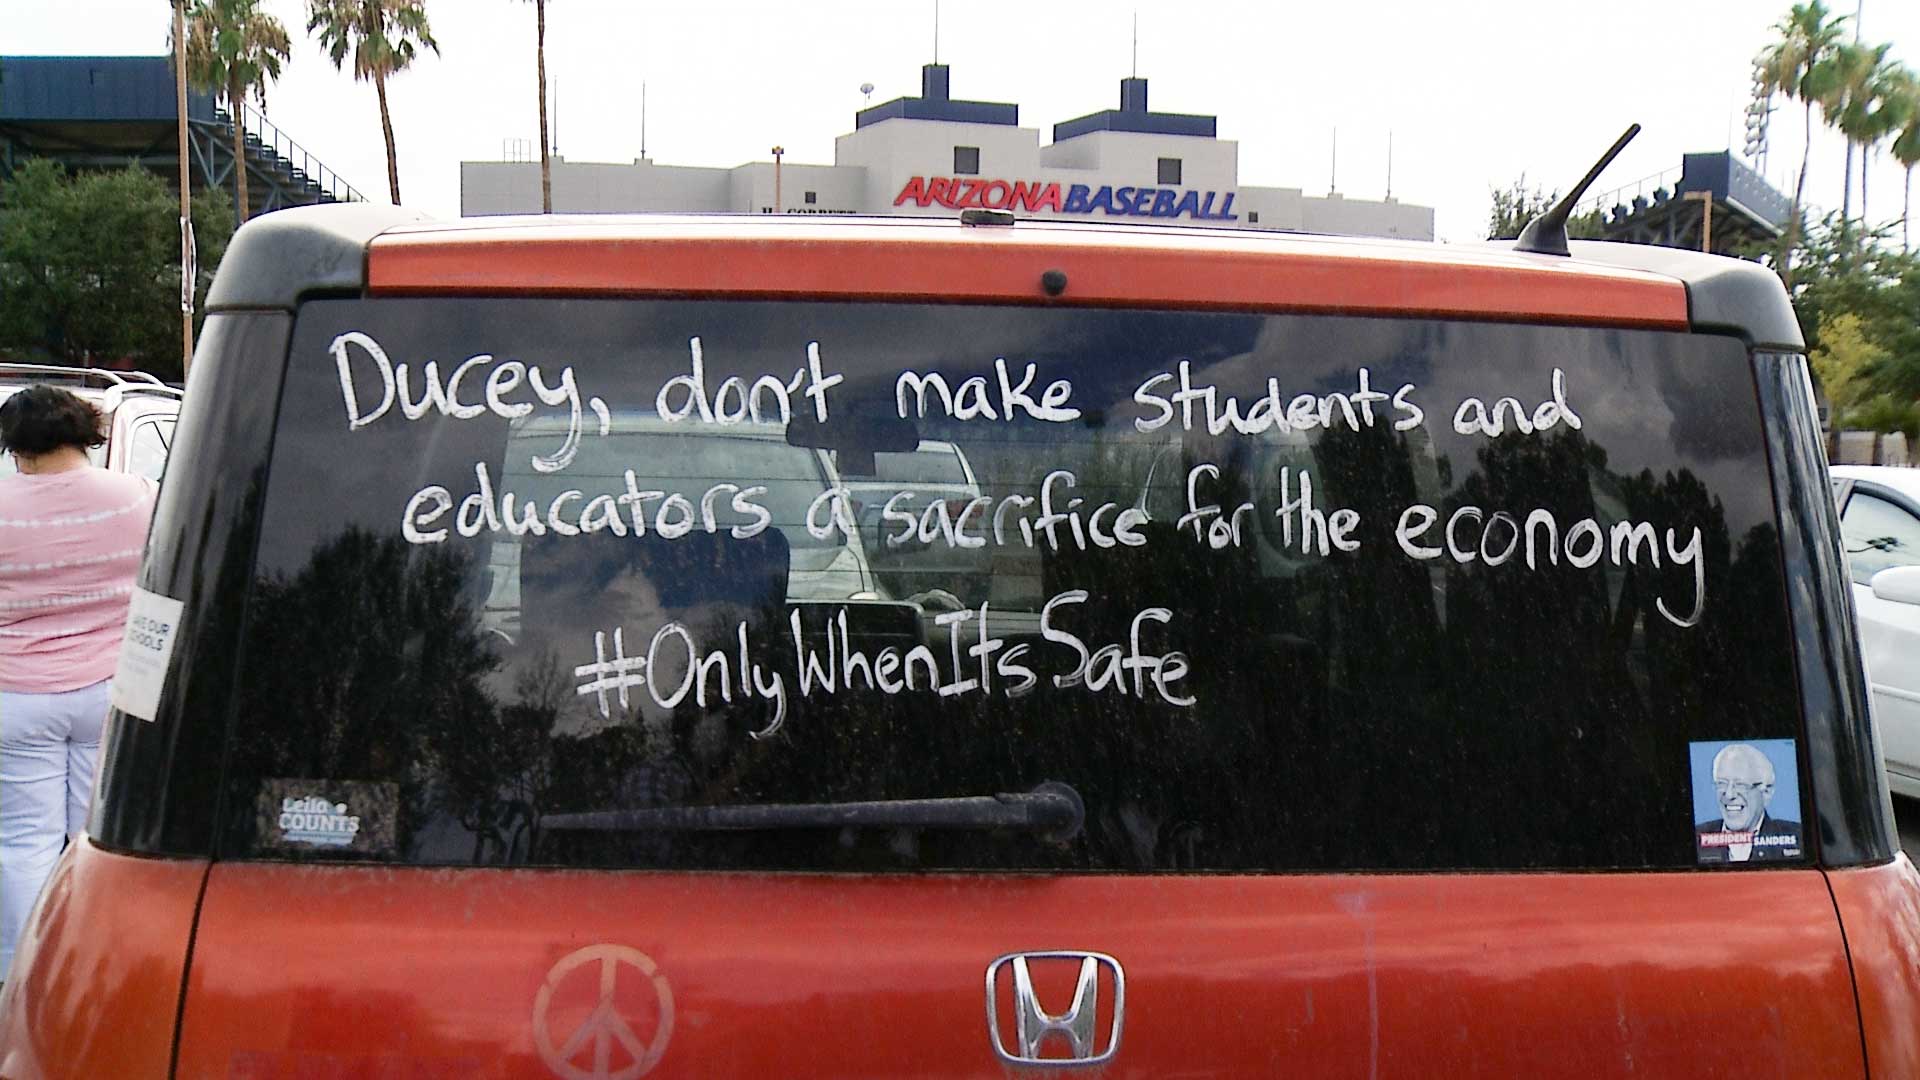 ARIZONA BASEBALL
Ducey, don't make students and
educators a sacrifice for the economy
#OnlyWhenItsSafe
OUR
Leila
COUNTS
PRESIDENT SANDERS